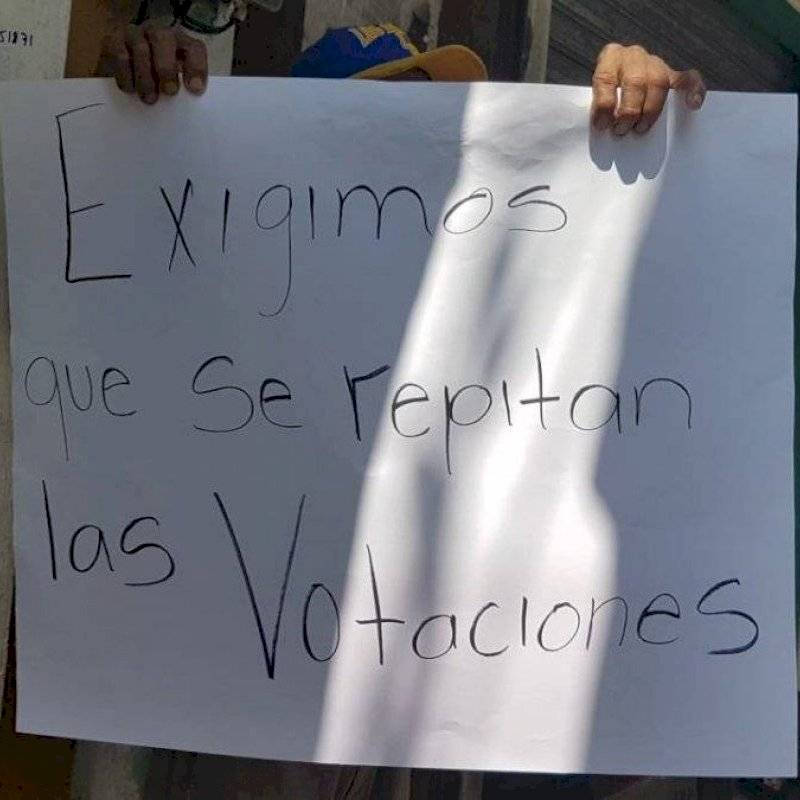 Exigimos
que se repitan
las Votaciones